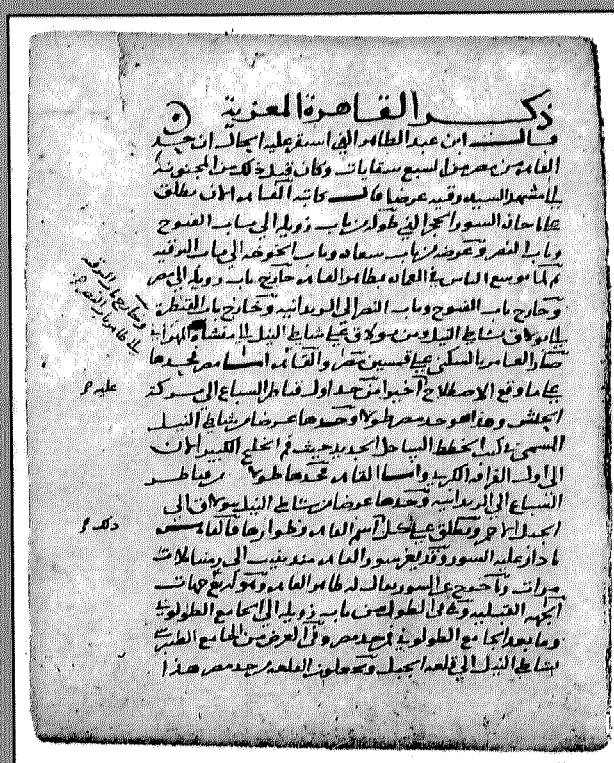 ذكر القاهرة المعزية
قال ابن عبد الظاهر الذي استقر عليه الحال ان حد
القاهرة من مصر من السبع سقايات وكان قبل ذلك من المجنونة
الى مشهد السيدة رقية عرضا قال كاتبه القاهرة الان تطلق
على ما حازه السور الحجر الذي طوله من باب زويلة الى باب الفتوح
وباب النصر وعرضه من باب سعادة وباب الخوخة الى باب البرقية
ثم لما توسع الناس في العمارة بظاهر القاهرة خارج باب زويلة الى مصر
وخارج باب الفتوح وباب النصر الى الريدانية وخارج باب القنطرة
الى بولاق بشاطئ النيل ومن بولاق على شاطئ النيل الى منشاة المهراني
صار العامر بالسكنى على قسمين مصر والقاهرة اما مصر فحدها
على ما وقع الاصطلاح اخيرا من حد اول قناطر السباع الى بركة
الحبش وهذا هو حد مصر طولا وحدها عرضا من شاطئ النيل
السمى بذلك الخطط الساحل الجديد حيث فم الخليج الكبير الان
الى اول القرافة الكبرى واما القاهرة فحدها طولا من قناطر
السباع الى الريدانية وحدها عرضا من شاطئ النيل ببولاق الى
الجبل الاحمر ويطلق على كل اسم القاهرة وظواهرها فالقاهرة
ما دار عليه السور وقد تغير سور القاهرة منذ بنيت الى
مرات وما خرج عن السور يقال له ظاهر القاهرة وهو اربع جهات
الجهة القبلية وهي في الطول من باب زويلة الى الجامع الطولوني
وما بعد الجامع الطولوني من حد مصر وفي العرض من الجامع الطيبرسي
بشاطئ النيل الى قلعة الجبل من حد مصر هذا
وخارج باب البرقية
عليه
ذلك